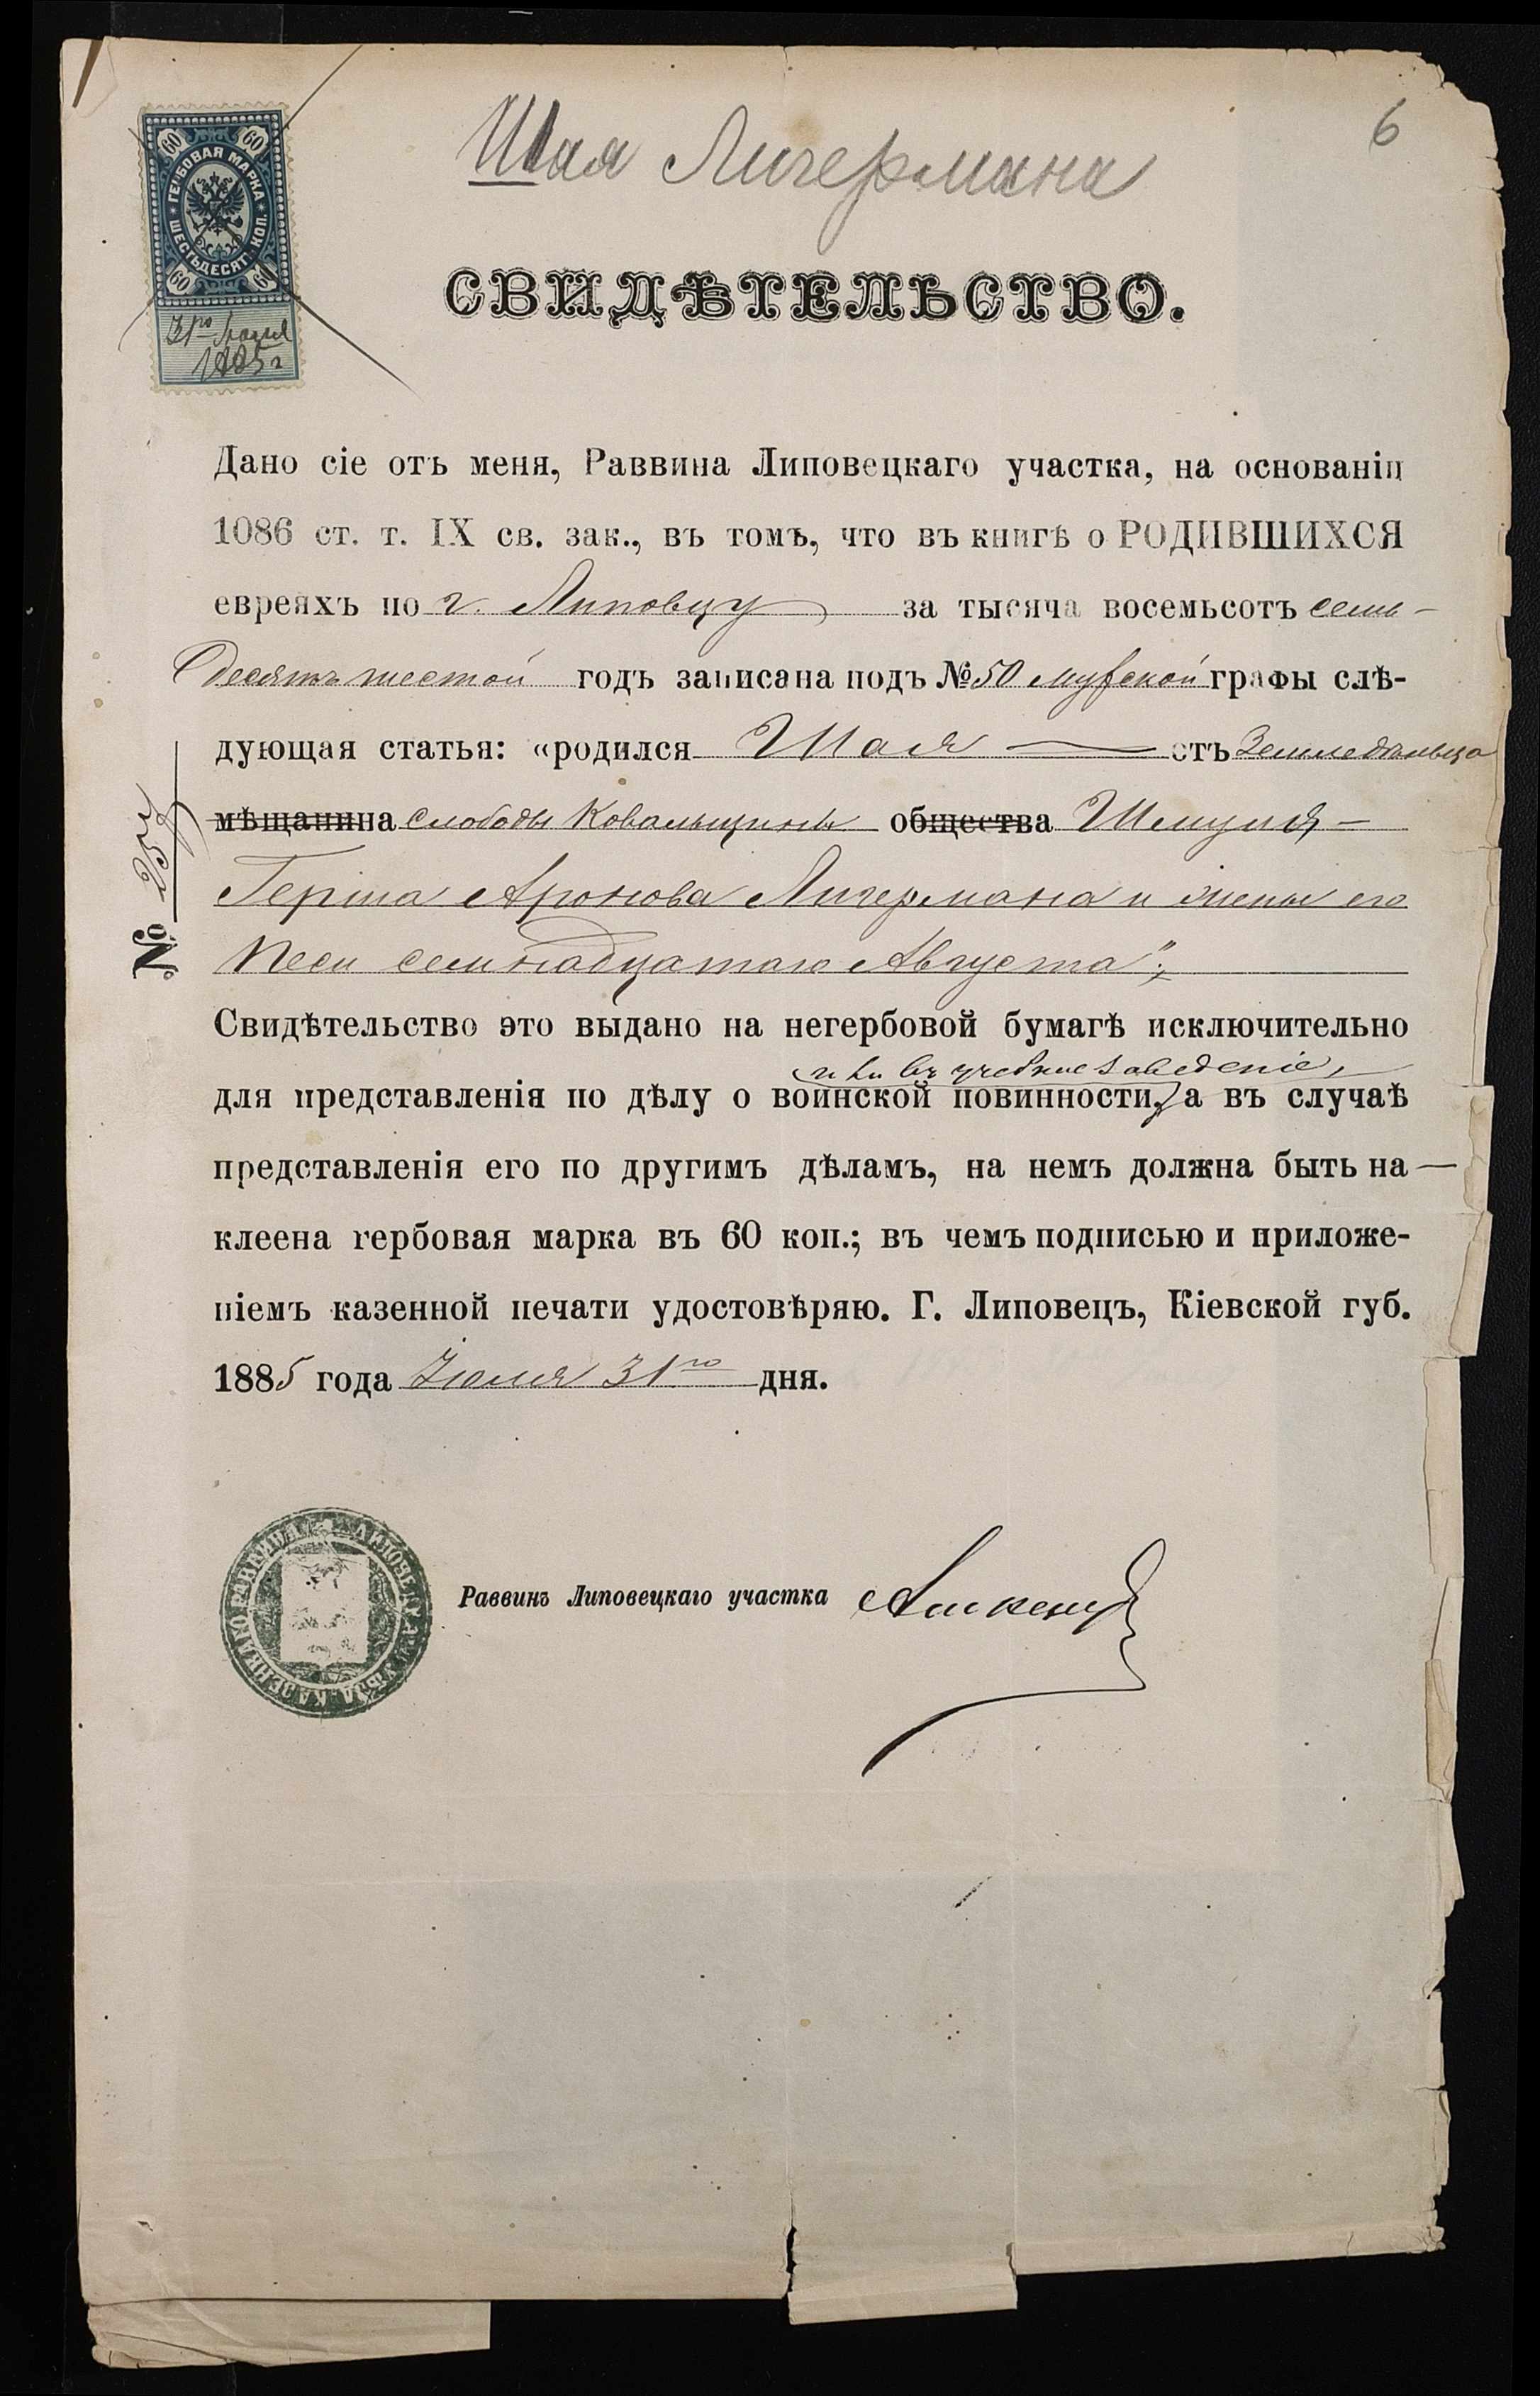 6
Шая Лигермана
60 60
ГЕРБОВАЯ МАРКА
ШЕСТЬДЕСЯТЪ КОП.
60 60
31го Іюля
1885 г
СВИДѢТЕЛЬСТВО.
Дано сіе отъ меня, Раввина Липовецкаго участка, на основаніи
1086 ст. т. IX св. зак., въ томъ, что въ книгѣ о РОДИВШИХСЯ
евреяхъ по г. Липовцу за тысяча восемьсотъ семь-
десятъ шестой годъ записана подъ № 50 мужской графы слѣ-
дующая статья: «родился Шая отъ Земледѣльца
мѣщанина слободы Ковальщины общества Шмуля-
Герша Аронова Лигермана и жены его
Песи семнадцатаго Августа";
Свидѣтельство это выдано на негербовой бумагѣ исключительно
и въ учебное заведеніе,
для представленія по дѣлу о воинской повинности, а въ случаѣ
представленія его по другимъ дѣламъ, на немъ должна быть на—
клеена гербовая марка въ 60 коп.; въ чемъ подписью и приложе-
ніемъ казенной печати удостовѣряю. Г. Липовецъ, Кіевской губ.
1885 года Іюля 31го дня.
№
Раввинъ Липовецкаго участка